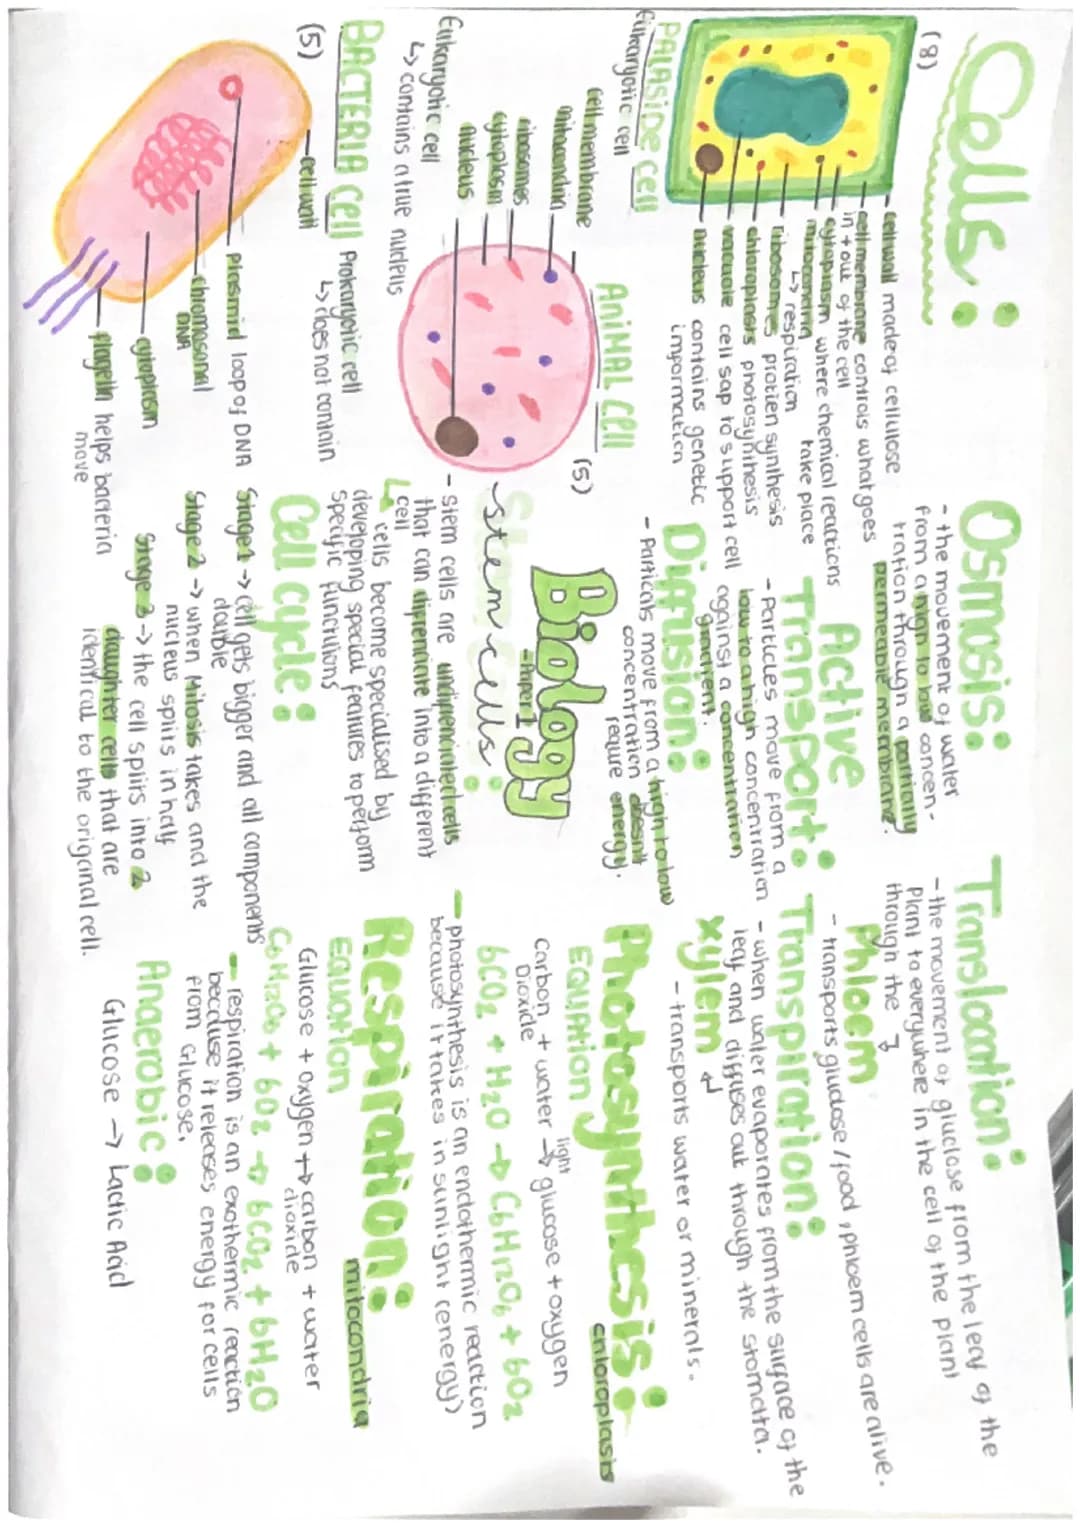 Cells:
(8)
cell wall made of cellulose
cell membrane controls what goes
in + out of the cell
cytoplasm where chemical reactions
take place
mitocondria
↳ respiration
ribosomes protien synthesis
chloroplasts photosynthesis
vacuole cell sap to support cell
nucleus contains genetic
information
PALASIDE CELL
Eukaryotic cell
ANIMAL CELL
(5)
cell membrane
mitocondria
ribosomes
cytoplasm
nucleus
Eukaryotic cell
↳ contains a true nucleus
BACTERIA CELL
(5)
Prokaryotic cell
↳ does not contain
cell wall
plasmid loop of DNA
chromosonal
DNA
cytoplasm
flagella helps bacteria
move
Osmosis:
- the movement of water
from a high to low concen-
tration through a partially
permeable membrane.
Active
Transport:
- particles move from a
low to a high concentration
against a concentration
gradient.
Diffusion:
- Particals move from a high to low
concentration doesn't
require energy.
Biology
- Paper 1
~stem cells:
- stem cells are undiferenciated cells
that can diferenciate into a different
cell
↳ cells become specialised by
developing special features to perform
specific functions
Cell cycle:
Stage 1 → cell gets bigger and all components
double
Stage 2 → when Mitosis takes and the
nucleus splits in half
Stage 3 → the cell splits into 2
daughter cells that are
identical to the original cell.
Translocation:
- the movement of glucose from the leaf of the
plant to everywhere in the cell of the plant
through the ↴
Phloem
- transports glucose / food, phloem cells are alive.
Transpiration:
- when water evaporates from the surface of the
leaf and diffuses out through the stomatta.
xylem ↲
- transports water or minerals.
Photosynthesis:
chloroplasts
EQUATION
Carbon + water →light glucose + oxygen
Dioxide
6CO2 + H2O → C6H12O6 + 6O2
- photosynthesis is an endothermic reaction
because it takes in sunlight (energy)
Respiration:
mitocondria
EQUATION
Glucose + oxygen → carbon + water
dioxide
C6H12O6 + 6O2 → 6CO2 + 6H2O
- respiration is an exothermic reaction
because it releases energy for cells
from Glucose.
Anaerobic:
Glucose → Lactic Acid